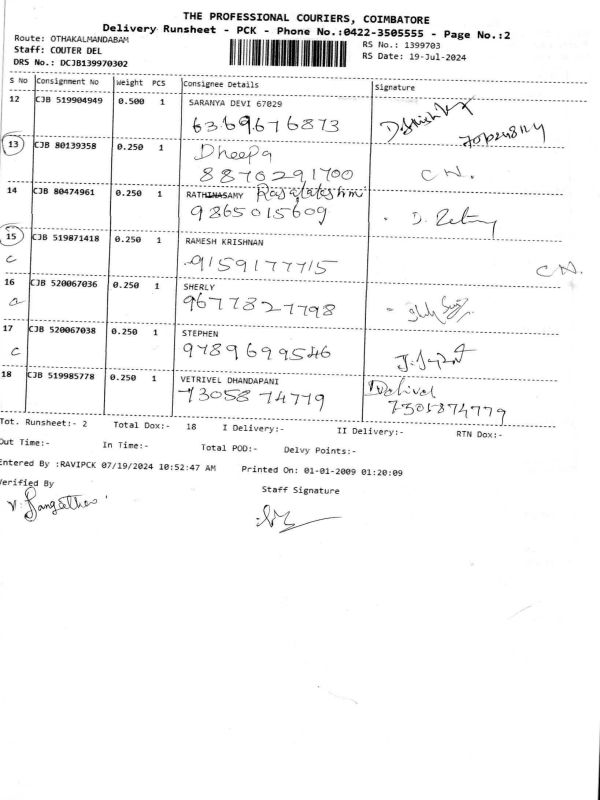 THE PROFESSIONAL COURIERS, COIMBATORE
Delivery Runsheet - PCK - Phone No.:0422-3505555 - Page No.:2
Route: OTHAKALMANDABAM
RS No.: 1399703
Staff: COUTER DEL
RS Date: 19-Jul-2024
DRS No.: DCJB139970302
S No Consignment No Weight PCS Consignee Details Signature
12 CJB 519904949 0.500 1 SARANYA DEVI 67029
6369676873
13 CJB 80139358 0.250 1 Dheepa
8870291700 CN.
14 CJB 80474961 0.250 1 RATHINASAMY Rajalakshmi
9865015609 D.
15 CJB 519871418 0.250 1 RAMESH KRISHNAN
C 9159177715 CN.
16 CJB 520067036 0.250 1 SHERLY
a 9677827798
17 CJB 520067038 0.250 1 STEPHEN
C 9789699546
18 CJB 519985778 0.250 1 VETRIVEL DHANDAPANI
73058 74779 7305874779
Tot. Runsheet:- 2 Total Dox:- 18 I Delivery:- II Delivery:- RTN Dox:-
Out Time:- In Time:- Total POD:- Delvy Points:-
Entered By :RAVIPCK 07/19/2024 10:52:47 AM Printed On: 01-01-2009 01:20:09
Verified By Staff Signature